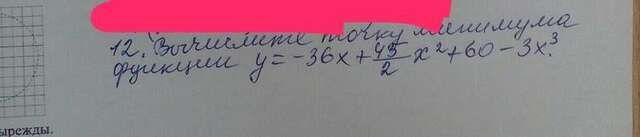 12. Вычислите точку минимума
функции y = -36x + 45/2 x² + 60 - 3x³.
вырежды.